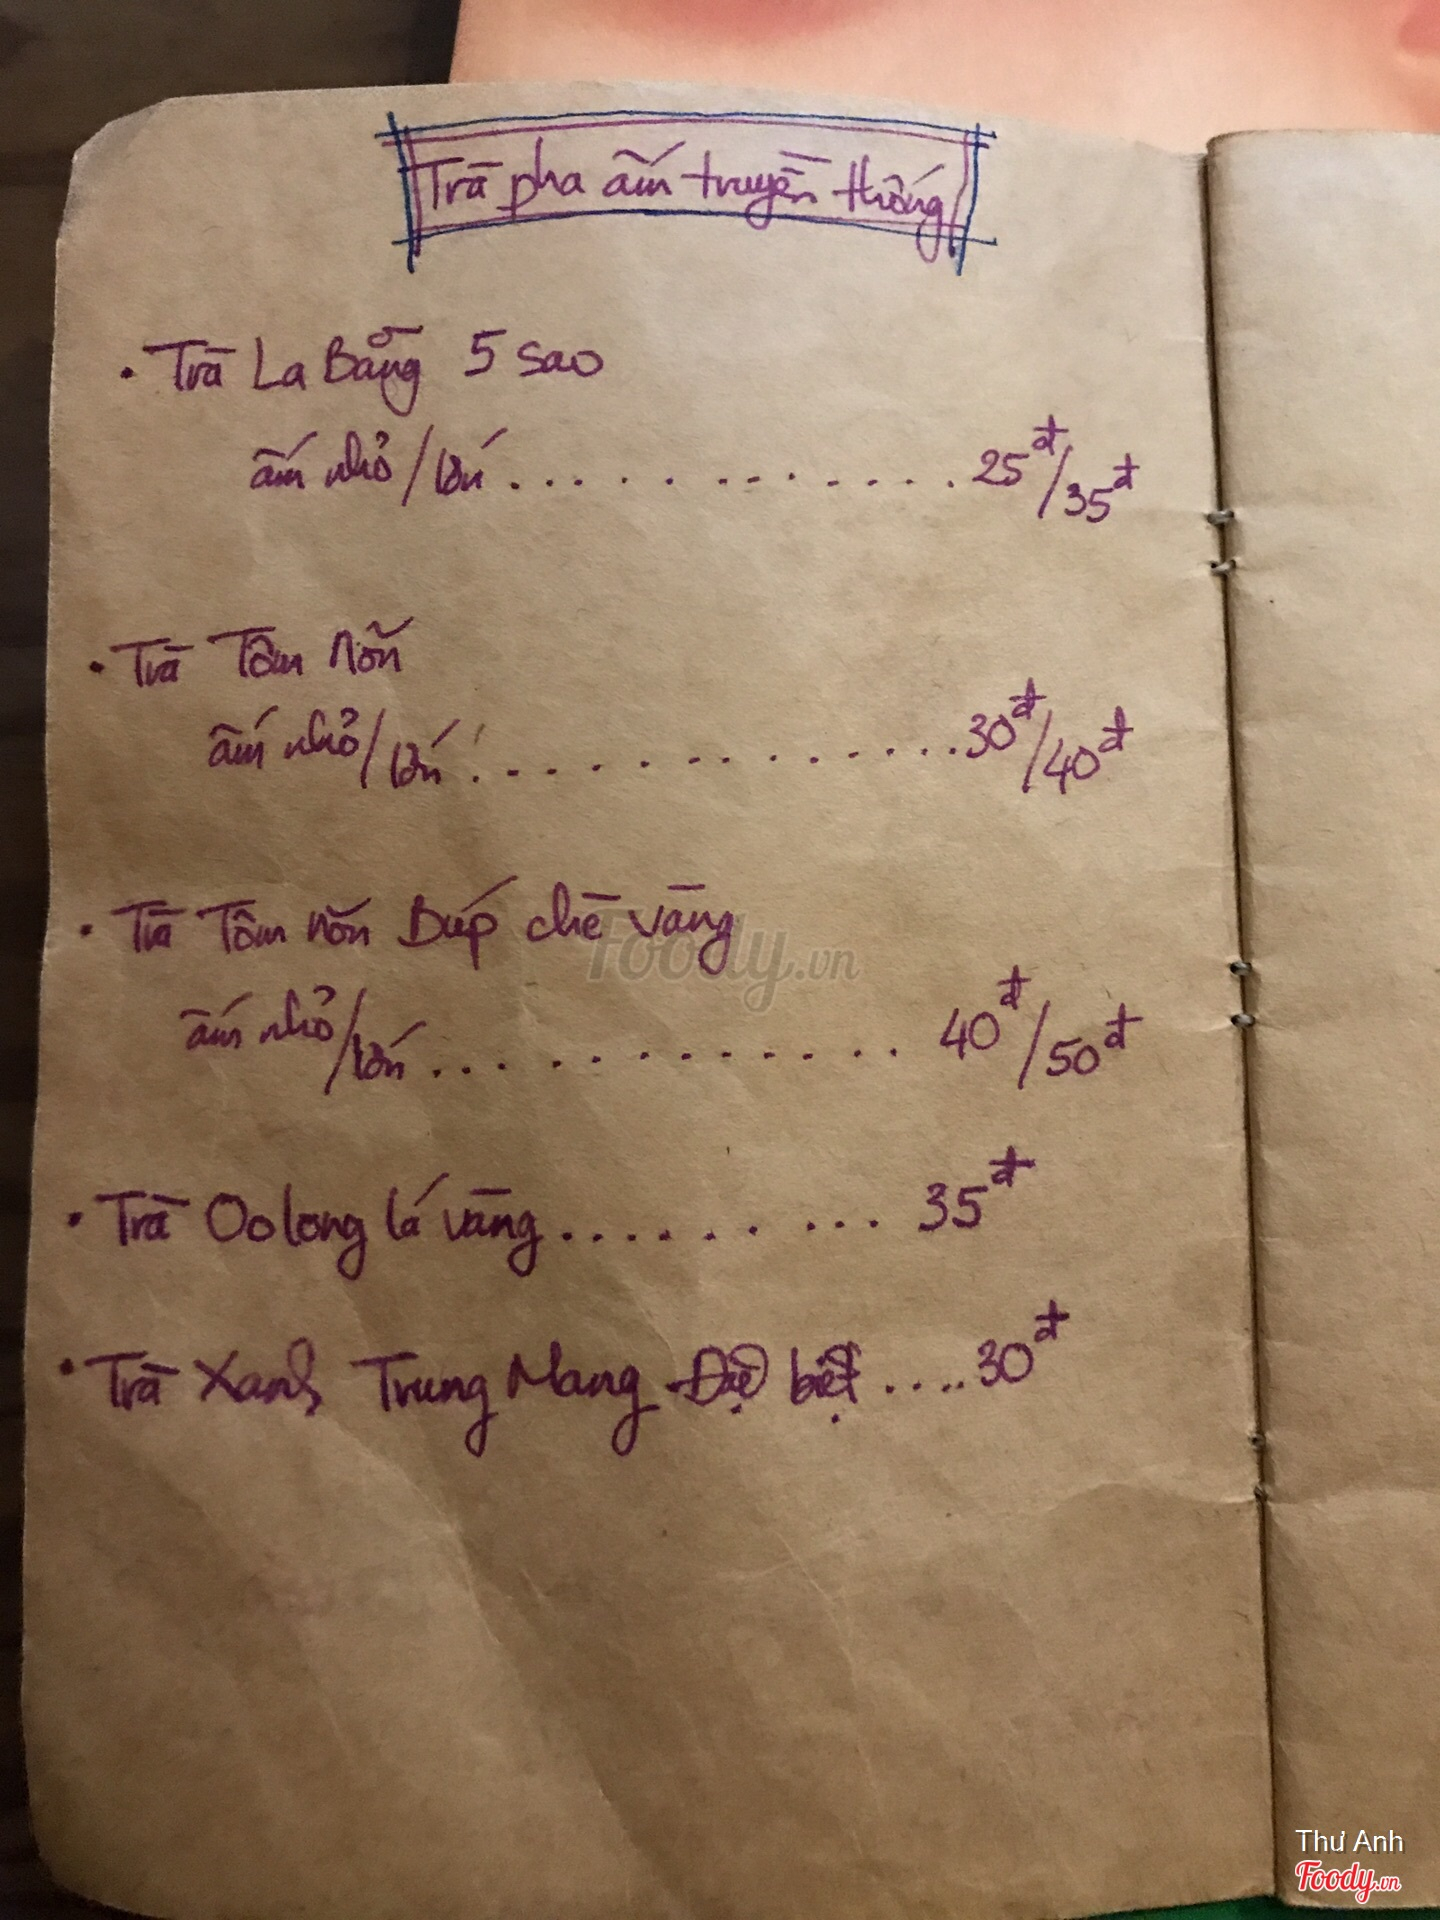 Trà pha ấm truyền thống
• Trà La Bằng 5 sao
ấm nhỏ/lớn ............. 25đ/35đ
• Trà Tôm nõn
ấm nhỏ/lớn .............. 30đ/40đ
• Trà Tôm nõn Búp chè vàng
ấm nhỏ/lớn .............. 40đ/50đ
• Trà Oolong lá vàng ......... 35đ
• Trà Xanh Trung Mang Đặc biệt .... 30đ
Foody.vn
Thư Anh
Foody.vn